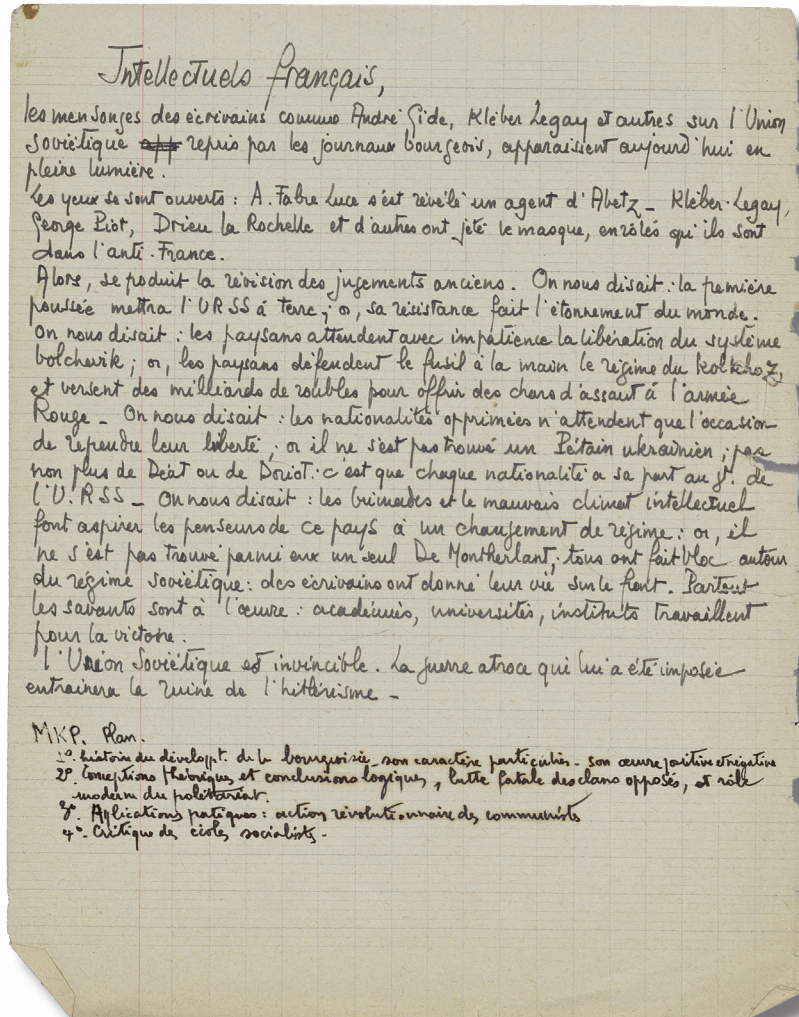 Intellectuels français,
les mensonges des écrivains comme André Gide, Kléber Legay et autres sur l'Union
soviétique app repris par les journaux bourgeois, apparaissent aujourd'hui en
pleine lumière.
Les yeux se sont ouverts : A. Fabre Luce s'est révélé un agent d'Abetz _ Kléber-Legay,
George Piot, Drieu la Rochelle et d'autres ont jeté le masque, enrôlés qu'ils sont
dans l'anti-France.
Alors, se produit la révision des jugements anciens. On nous disait : la première
poussée mettra l'URSS à terre ; or, sa résistance fait l'étonnement du monde.
On nous disait : les paysans attendent avec impatience la libération du système
bolchevik ; or, les paysans défendent le fusil à la main le régime du kolkhoz,
et versent des milliards de roubles pour offrir des chars d'assaut à l'armée
Rouge _ On nous disait : les nationalités opprimées n'attendent que l'occasion
de reprendre leur liberté ; or il ne s'est pas trouvé un Pétain ukrainien ; pas
non plus de Déat ou de Doriot : c'est que chaque nationalité a sa part au gt. de
l'U.RSS _ On nous disait : les brimades et le mauvais climat intellectuel
font aspirer les penseurs de ce pays à un changement de régime : or, il
ne s'est pas trouvé parmi eux un seul De Montherlant ; tous ont fait bloc autour
du régime soviétique : des écrivains ont donné leur vie sur le front. Partout
les savants sont à l'œuvre : académies, universités, instituts travaillent
pour la victoire.
l'Union Soviétique est invincible. La guerre atroce qui lui a été imposée
entraînera la ruine de l'hitlérisme _
MKP. Plan.
1º. histoire du développt. de la bourgeoisie _ son caractère particulier - son œuvre positive et négative
2º. Conceptions théoriques et conclusions logiques, lutte fatale des clans opposés, et rôle
moderne du prolétariat.
3º. Applications pratiques : action révolutionnaire des communistes
4º. Critique des écoles socialistes.